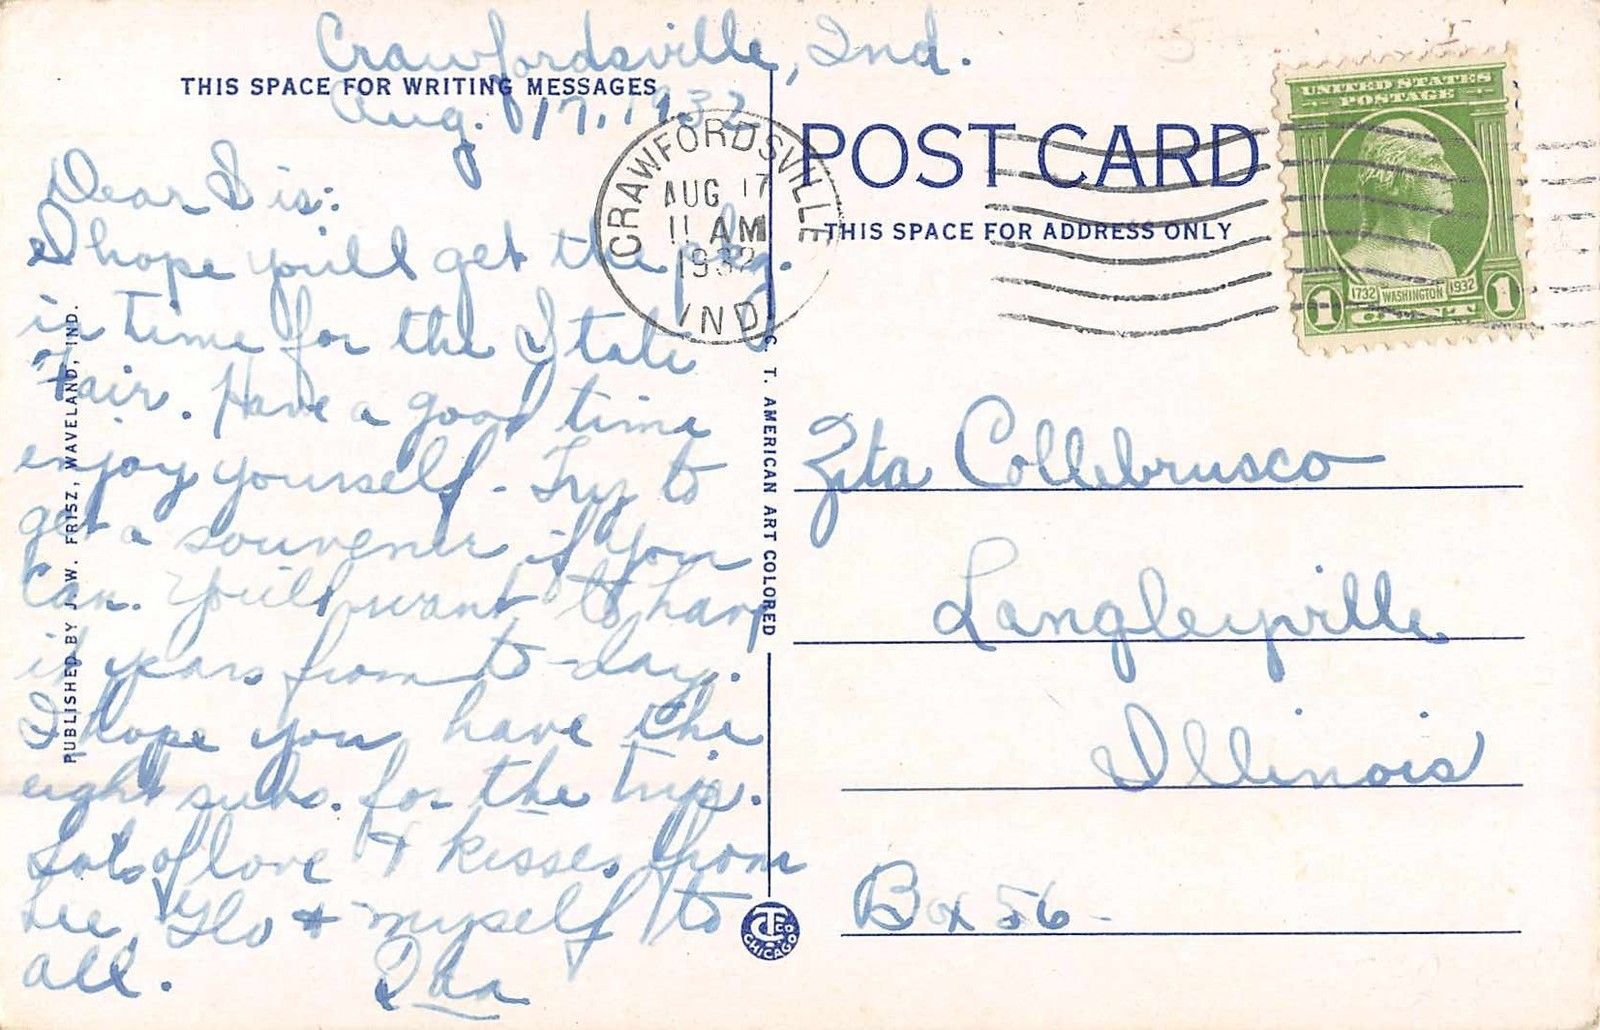 Crawfordsville, Ind.
THIS SPACE FOR WRITING MESSAGES
Aug. 17, 1932
Dear Sis:
I hope you'll get the pkg.
in time for the State
Fair. Have a good time
enjoy yourself. Try to
get a souvenir if you
can. You'll want to have
it years from to-day.
I hope you have the
eight subs. for the trip.
Lots of love & kisses from
Lee, Glo & myself to
all.
Ida
PUBLISHED BY J. W. FRISZ, WAVELAND, IND.
CRAWFORDSVILLE
AUG 17
11 AM
1932
IND.
C. T. AMERICAN ART COLORED
CT CO
CHICAGO
POST CARD
THIS SPACE FOR ADDRESS ONLY
UNITED STATES
POSTAGE
1732 WASHINGTON 1932
1 CENT 1
Zita Collebrusco
Langleyville
Illinois
Box 56